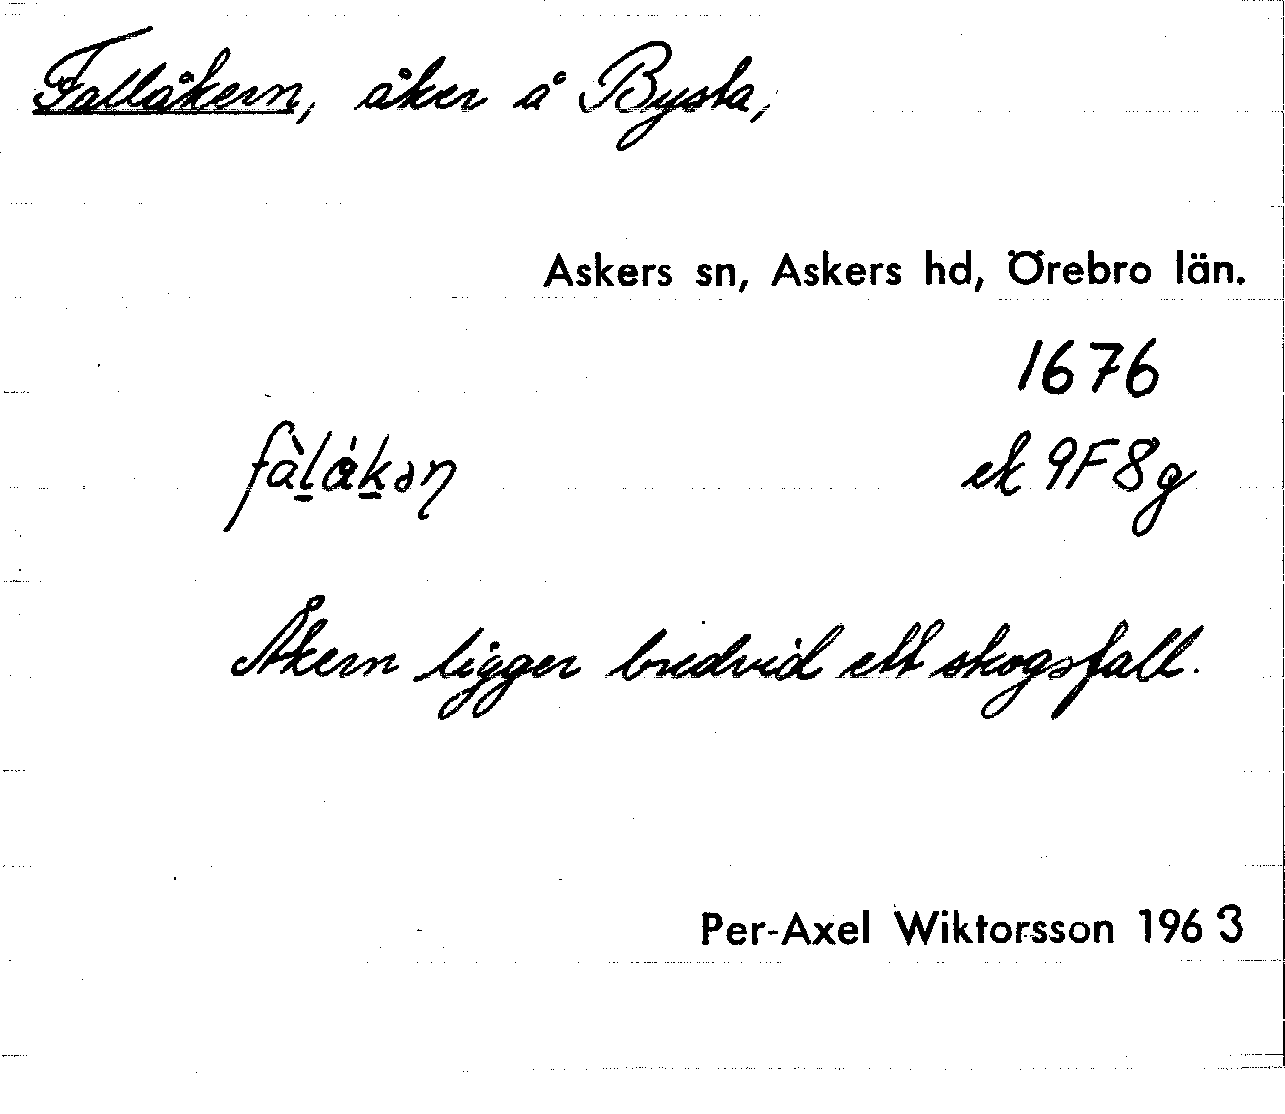 Fallåkern, åker å Bysta,
Askers sn, Askers hd, Örebro län.
1676
fàl̠ǻk̠ən
ek 9F8g
Åkern ligger bredvid ett skogsfall.
Per-Axel Wiktorsson 1963